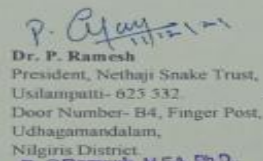 11/12/21
Dr. P. Ramesh
President, Nethaji Snake Trust,
Usilampatti- 625 532.
Door Number- B4, Finger Post,
Udhagamandalam,
Nilgiris District.